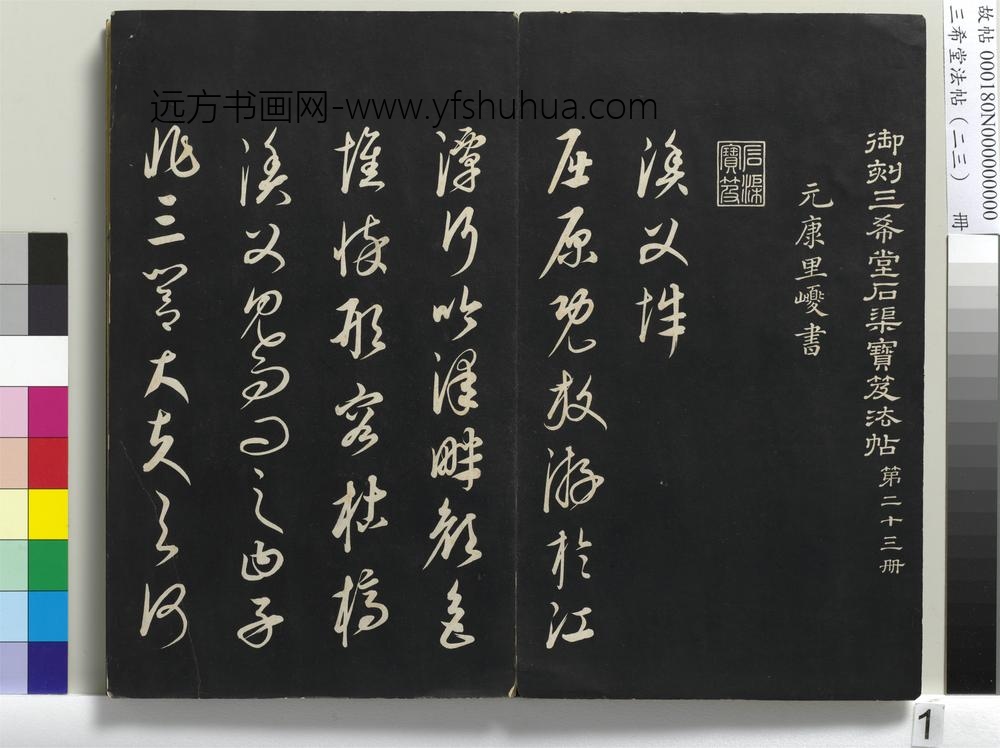 远方书画网-www.yfshuhua.com
故帖 000180N000000000
三希堂法帖（二三） 册
御刻三希堂石渠寶笈法帖 第二十三册
元康里巎書
石渠寶笈
漁父辭
屈原既放游於江
潭行吟澤畔顔色
憔悴形容枯槁
漁父見而問之曰子
非三閭大夫與何
1